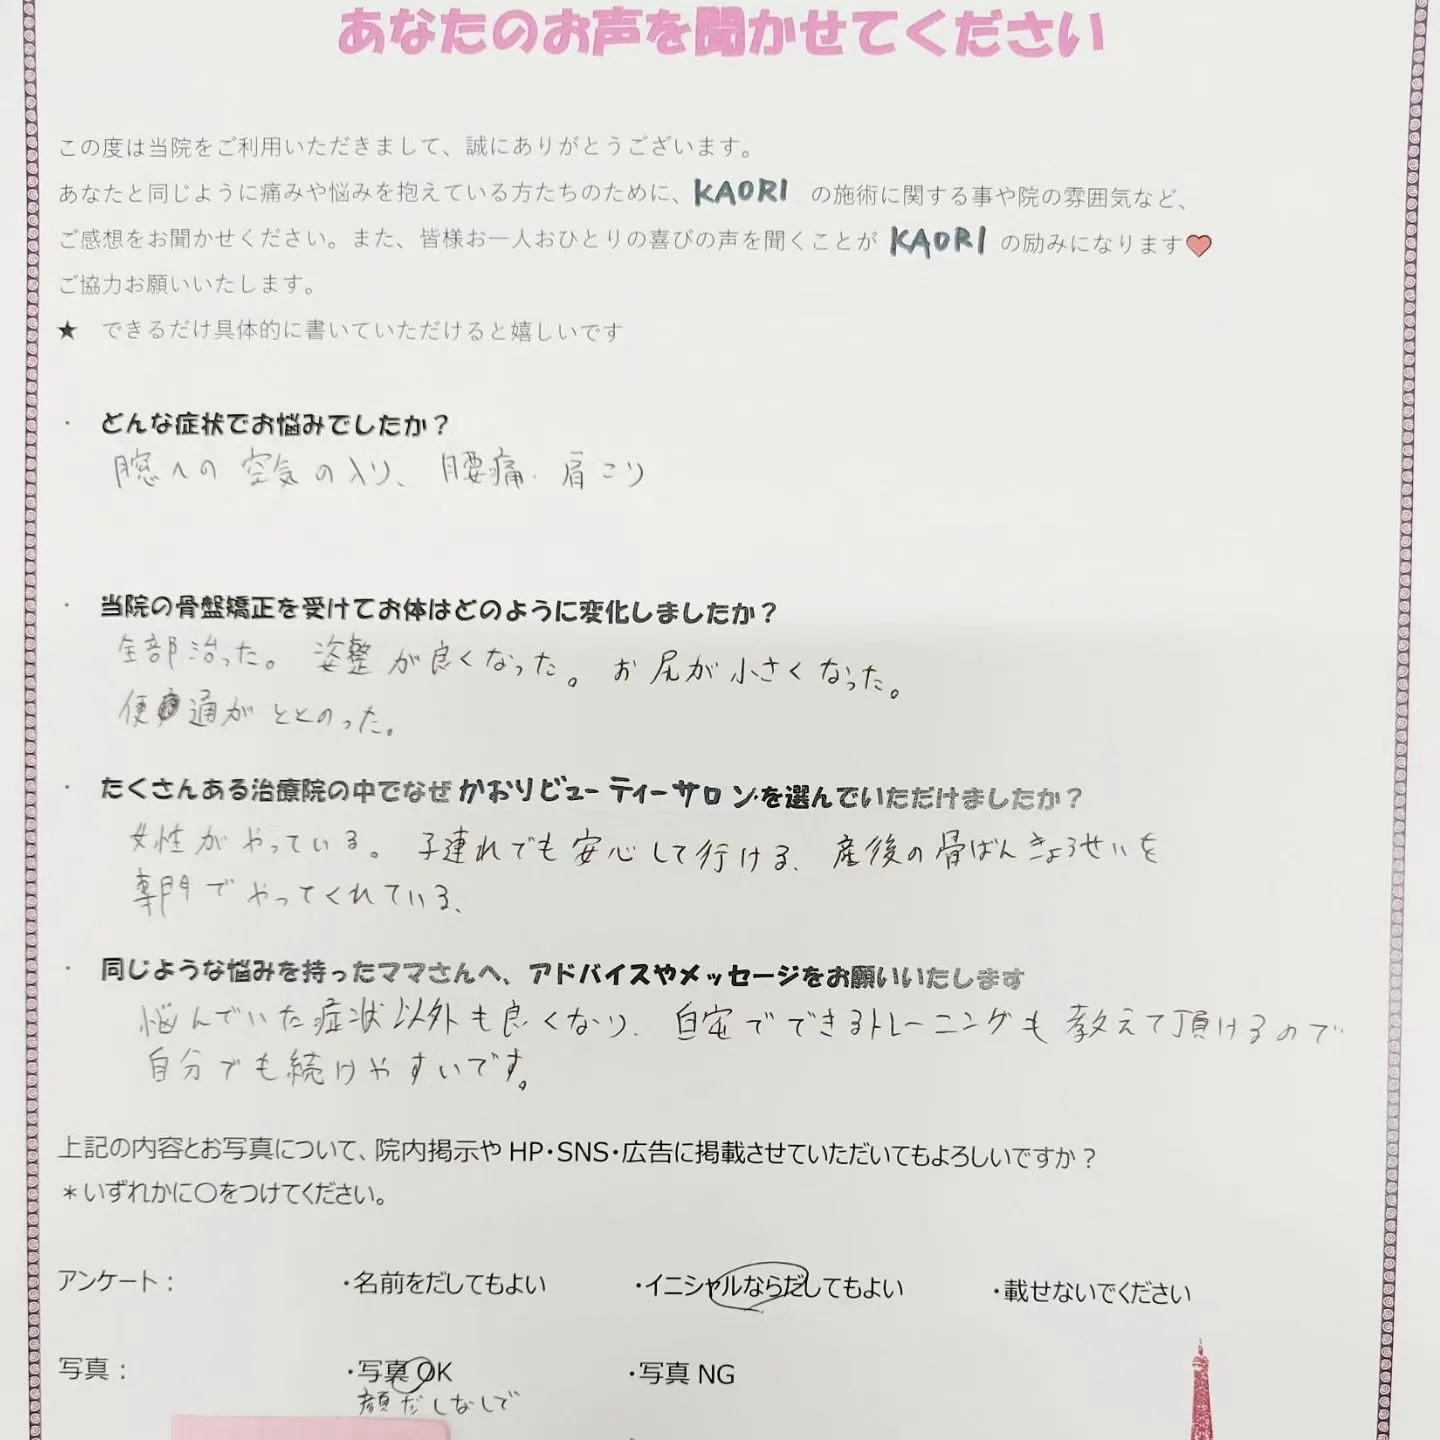 あなたのお声を聞かせてください
この度は当院をご利用いただきまして、誠にありがとうございます。
あなたと同じように痛みや悩みを抱えている方たちのために、KAORI の施術に関する事や院の雰囲気など、
ご感想をお聞かせください。また、皆様お一人おひとりの喜びの声を聞くことが KAORI の励みになります♥
ご協力お願いいたします。
★ できるだけ具体的に書いていただけると嬉しいです
・ どんな症状でお悩みでしたか?
への空気の入り、腰痛、肩こり
・ 当院の骨盤矯正を受けてお体はどのように変化しましたか?
全部治った。姿整が良くなった。お尻が小さくなった。
便通がととのった。
・ たくさんある治療院の中でなぜかおりビューティーサロンを選んでいただけましたか?
女性がやっている。子連れでも安心して行ける、産後の骨ばんきょうせいを
専門でやってくれている、
・ 同じような悩みを持ったママさんへ、アドバイスやメッセージをお願いいたします
悩んでいた症状以外も良くなり、自宅でできるトレーニングも教えて頂けるので
自分でも続けやすいです。
上記の内容とお写真について、院内掲示や HP・SNS・広告に掲載させていただいてもよろしいですか?
*いずれかに〇をつけてください。
アンケート: ・名前をだしてもよい ・イニシャルならだしてもよい ・載せないでください
写真: ・写真 OK ・写真 NG
顔だしなしで